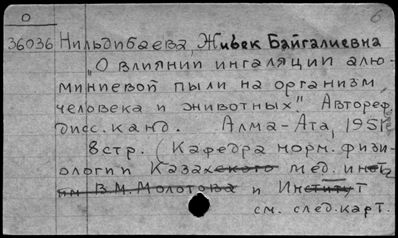 О
б
36036 Нильдибаева, Живек Байгалиевна
„О влиянии ингаляции алю-
миниевой пыли на организм
человека и животных". Автореф.
дисс. канд. Алма-Ата, 1951
8 стр. (Кафедра норм. физи-
ологии Казахского мед. инст.
им В.М. Молотова и Институт
см. след. карт.